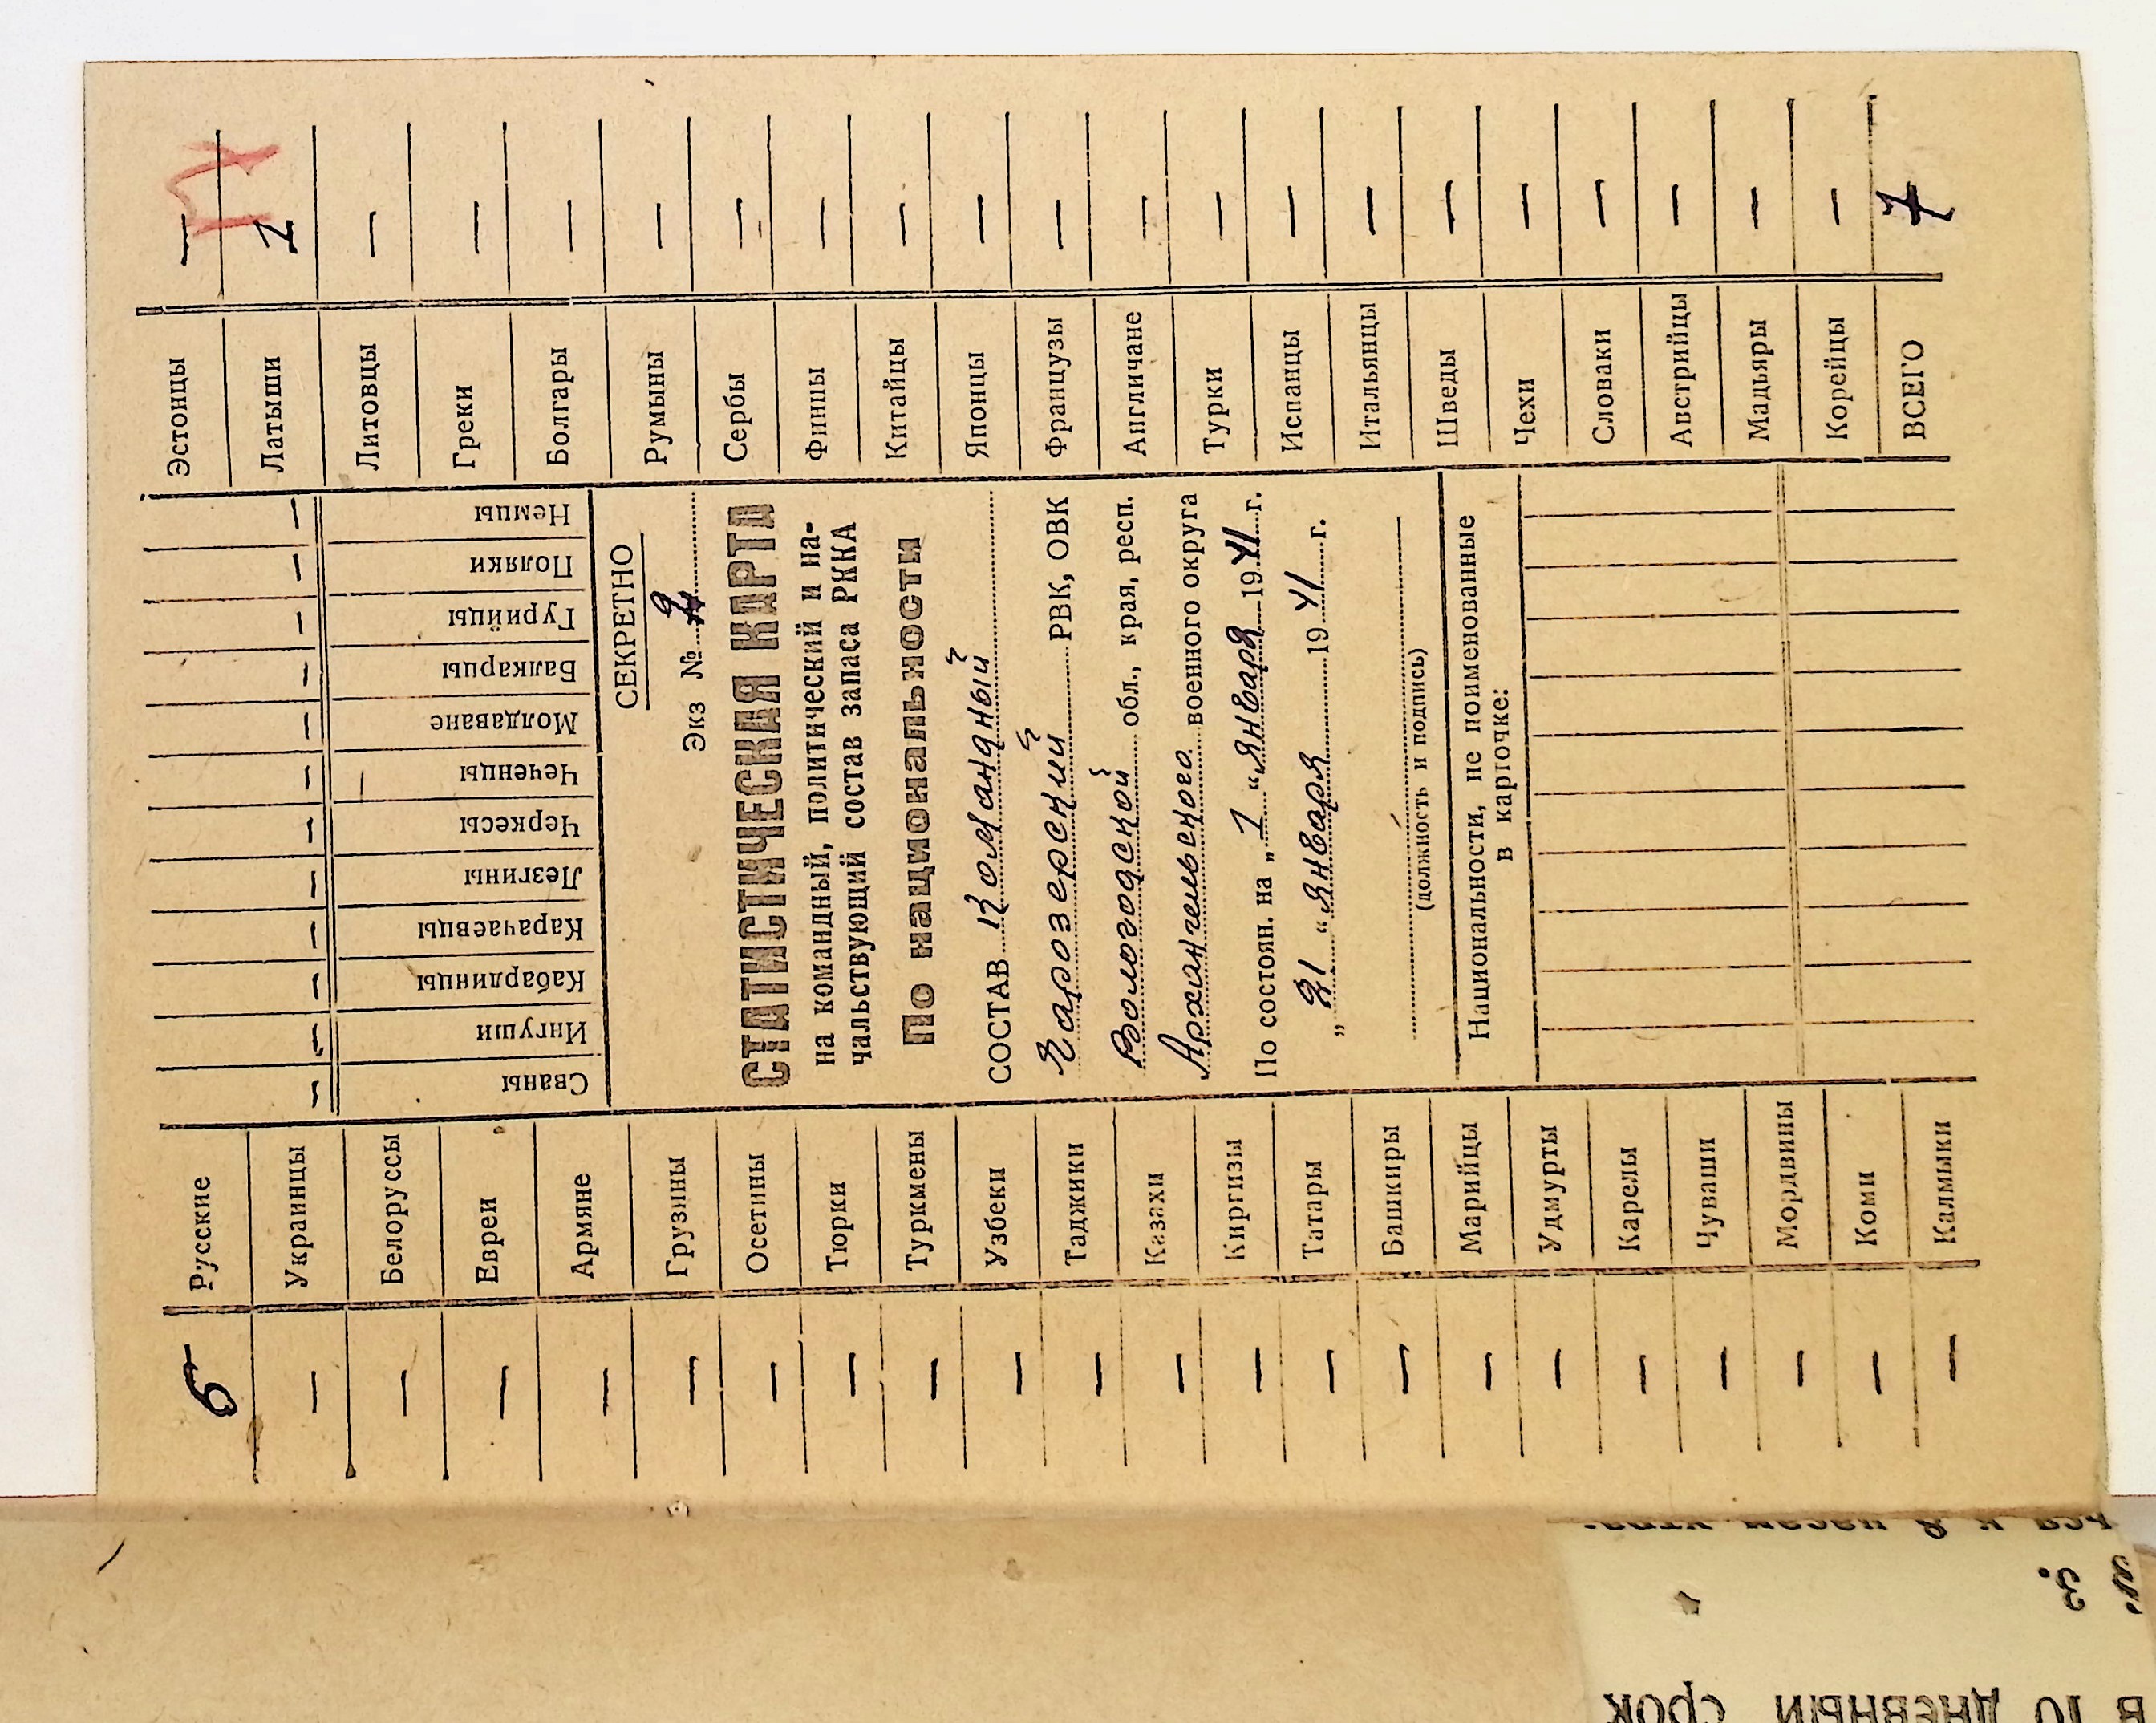 6 Русские
— Украинцы
— Белоруссы
— Евреи
— Армяне
— Грузины
— Осетины
— Тюрки
— Туркмены
— Узбеки
— Таджики
— Казахи
— Киргизы
— Татары
— Башкиры
— Марийцы
— Удмурты
— Карелы
— Чуваши
— Мордвины
— Коми
— Калмыки
Сваны —
Ингуши —
Кабардинцы —
Карачаевцы —
Лезгины —
Черкесы —
Чеченцы —
Молдаване —
Балкарцы —
Гурийцы —
Поляки —
Немцы —
СЕКРЕТНО
Экз № 2
СТАТИСТИЧЕСКАЯ КАРТА
на командный, политический и на-
чальствующий состав запаса РККА
По национальности
СОСТАВ Командный
Чарозерский РВК, ОВК
Вологодской обл., края, респ.
Архангельского военного округа
По состоян. на „1“ января 1941 г.
„31“ января 1941 г.
(должность и подпись)
Национальности, не поименованные
в карточке:
Эстонцы —
Латыши 1
Литовцы —
Греки —
Болгары —
Румыны —
Сербы —
Финны —
Китайцы —
Японцы —
Французы —
Англичане —
Турки —
Испанцы —
Итальянцы —
Шведы —
Чехи —
Словаки —
Австрийцы —
Мадьяры —
Корейцы —
ВСЕГО 7
в 10 дневный срок
к 8 часам утра.